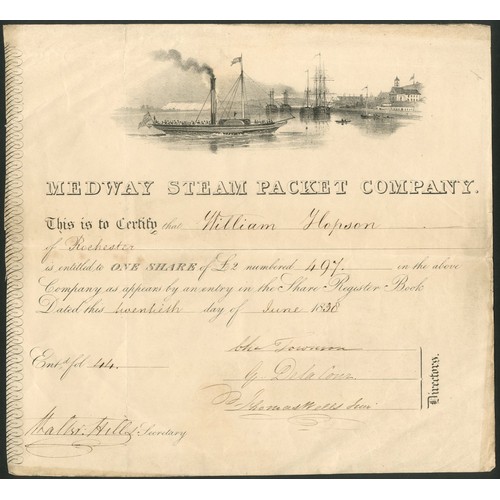 MEDWAY STEAM PACKET COMPANY.
This is to Certify that William Hopson
of Rochester
is entitled to ONE SHARE of £2 numbered 497. in the above
Company as appears by an entry in the Share Register Book
Dated this twentieth day of June 1838
Ent.d fol. 44.
Townson
G. Delacour
Thomas Wells Junr
Directors.
Hill Secretary